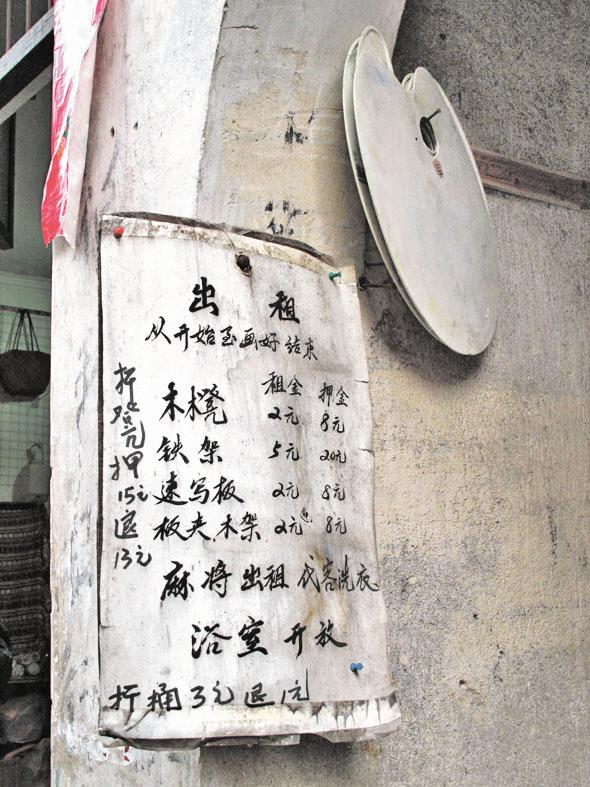 出 租
从开始至画好结束
租金 押金
木櫈 2元 8元
铁架 5元 20元
速写板 2元 8元
板夹木架 2元 8元
麻将出租 代客洗衣
浴室开放
折桶3元退1元
折凳元押15元退13元